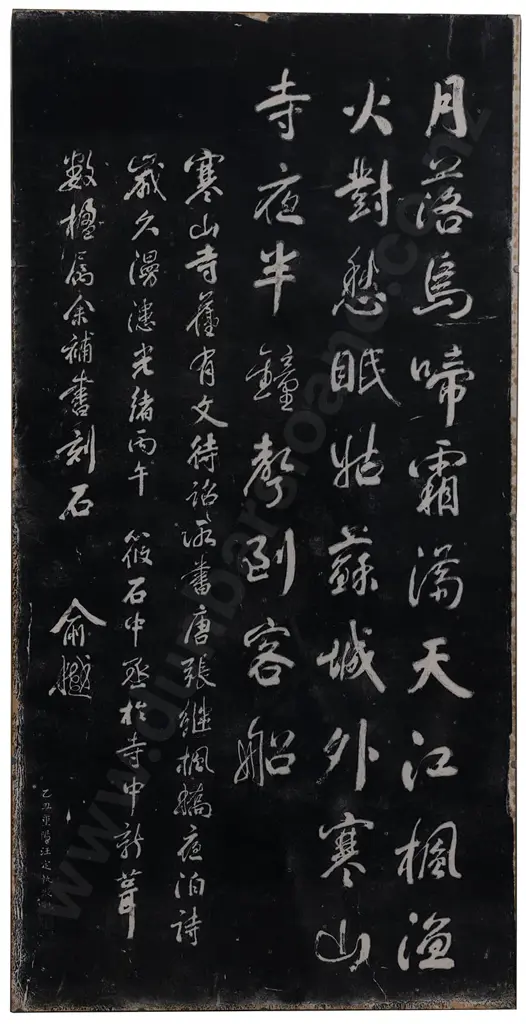 月落烏啼霜滿天江楓漁
火對愁眠姑蘇城外寒山
寺夜半鐘聲到客船
寒山寺舊有文待詔所書唐張繼楓橋夜泊詩
歲久漫漶光緒丙午筱石中丞於寺中新葺
數楹屬余補書刻石
俞樾
www.dunbarsloane.co.nz